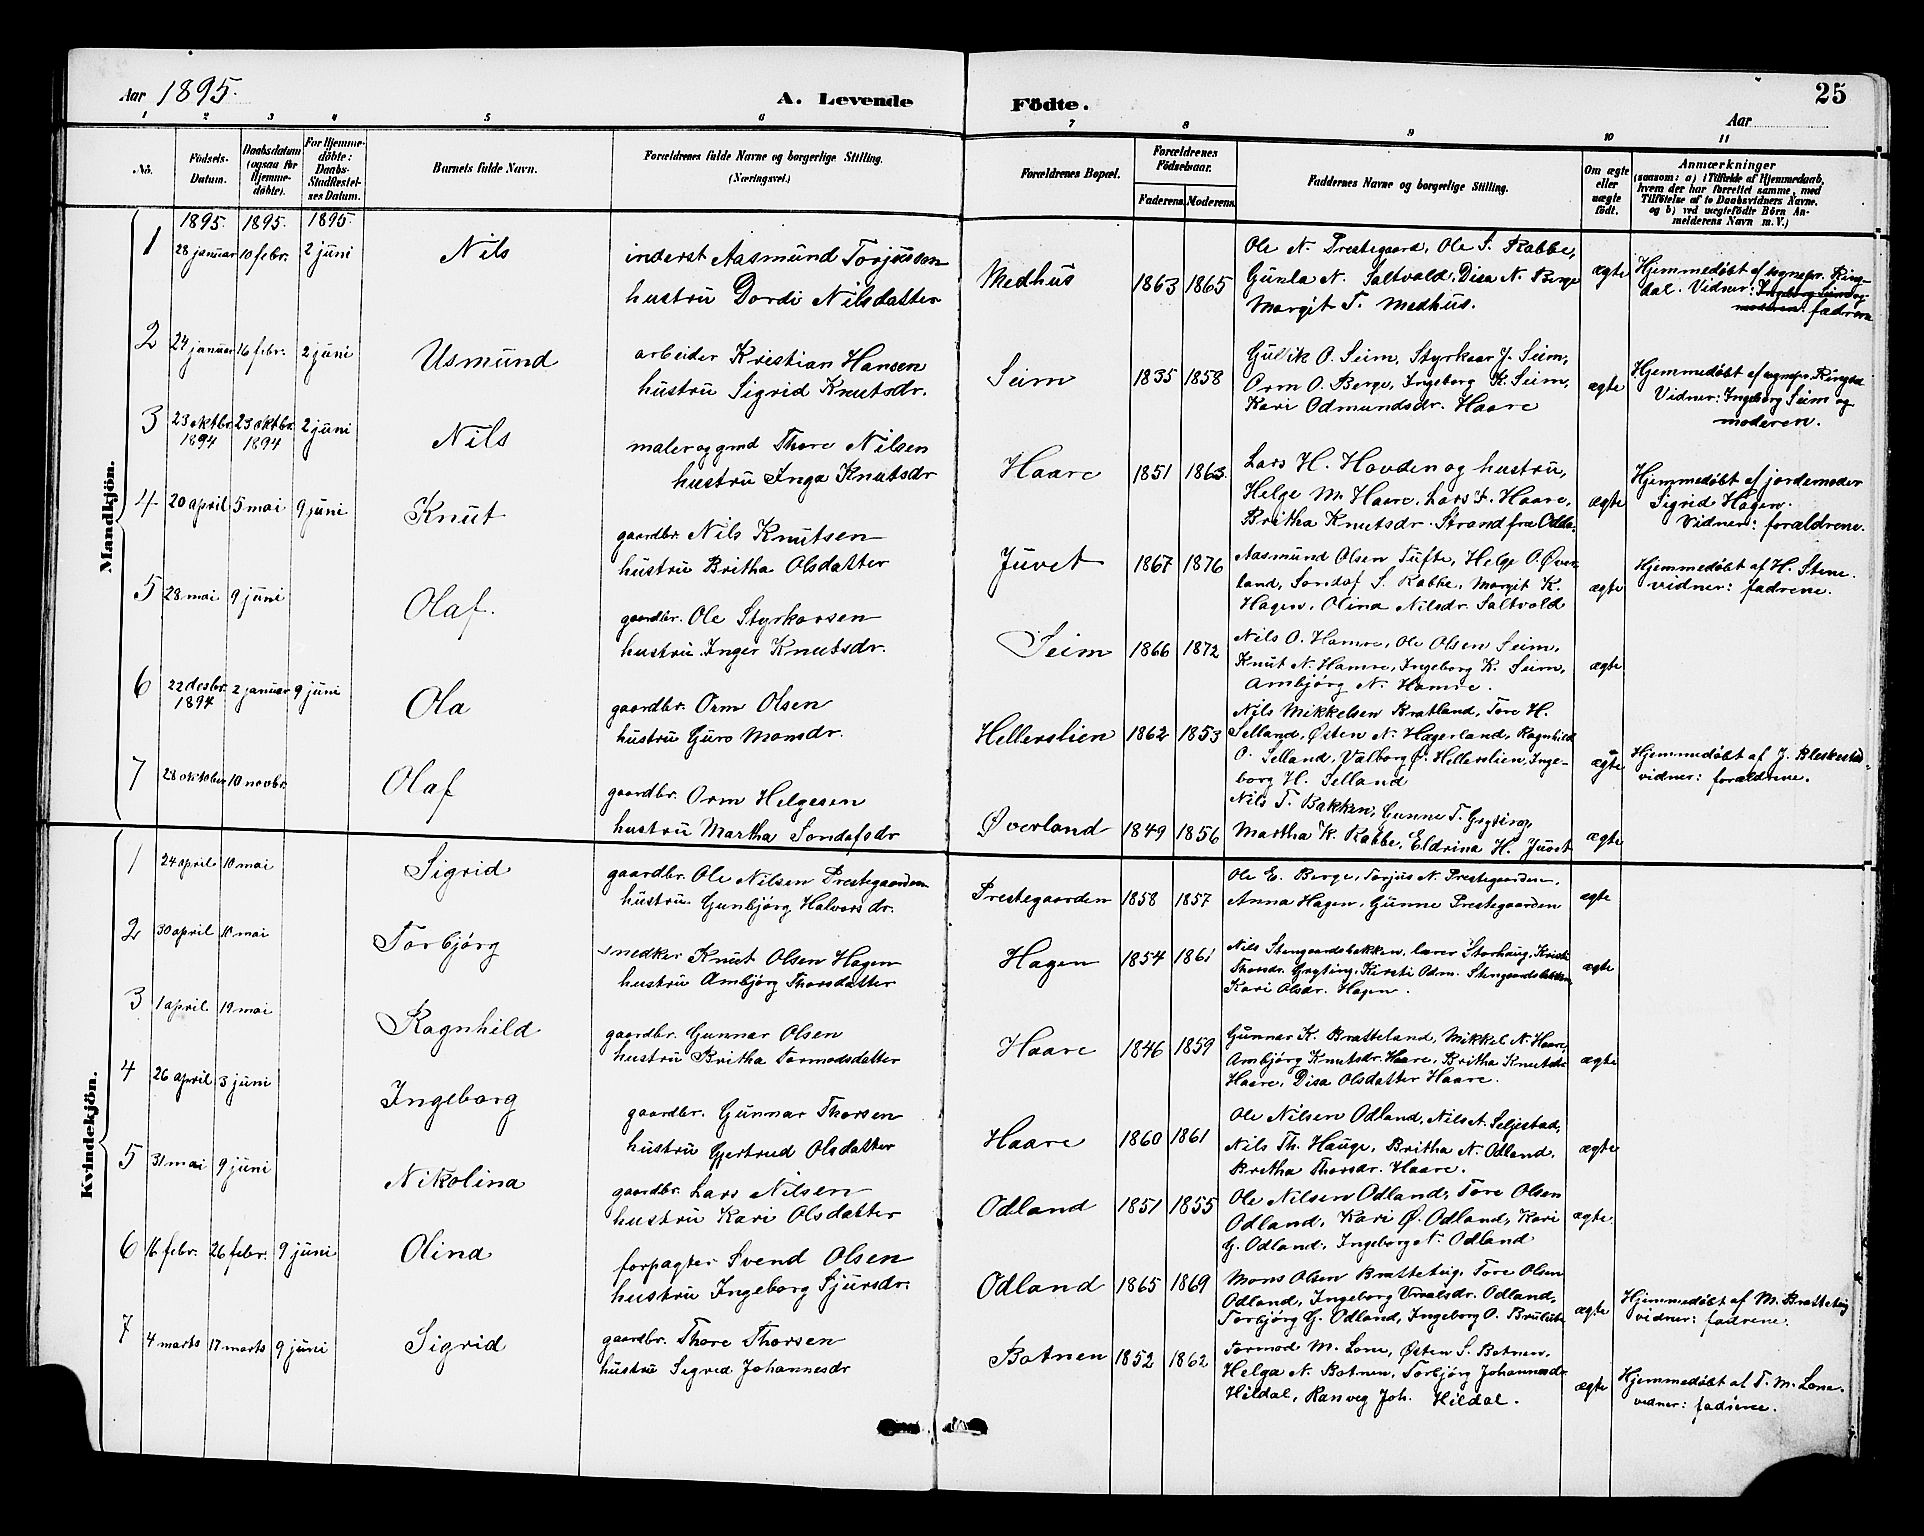 Aar 1895.
A. Levende Födte.
25
Aar
1 2 3 4 5 6 7 8 9 10 11
No.
Födsels-
Datum.
Daabsdatum
(ogsaa for
Hjemme-
döbte).
For Hjemme-
döbte:
Daabs-
Stadfæstel-
ses Datum.
Barnets fulde Navn.
Forældrenes fulde Navne og borgerlige Stilling.
(Næringsvei.)
Forældrenes Bopæl.
Forældrenes
Födselsaar.
Faderens. Moderens.
Faddernes Navne og borgerlige Stilling.
Om ægte
eller
uægte
födt.
Anmærkninger
(saasom: a) i Tilfælde af Hjemmedaab,
hvem der har forrettet samme, med
Tilföielse af to Daabsvidners Navne.
og b) ved uægtefödte Börn An-
melderens Navn m.V.)
Mandkjön.
1895. 1895. 1895.
1 28 januar 10 febr. 2 juni Nils
inderst Aasmund Torjussen
hustru Dordi Nilsdatter
Medhus 1863 1865
Ole N. Prestegaard, Ole S. Rabbe,
Gunla N. Saltvold, Disa N. Berge
Margit T. Medhus.
ægte
Hjemmedøbt af sognepr. Ring-
dal. Vidner: Ingeborg Seim og
moderen. fadrene
2 24 januar 16 febr. 2 juni Usmund
arbeider Kristian Hansen
hustru Sigrid Knutsdr.
Seim 1835 1858
Gulvik O. Seim, Styrkaar J. Seim,
Orm O. Berge, Ingeborg K. Seim,
Kari Odmundsdr. Haare
ægte
Hjemmedøbt af sognepr. Ringdal
Vidner: Ingeborg Seim og
moderen.
3 23 oktbr. 23 oktbr. 2 juni Nils
1894 1894
maler og gmd Thore Nilsen
hustru Inga Knutsdr
Haare 1851 1863.
Lars H. Hovden og hustru,
Helge M. Haare, Lars T. Haare,
Britha Knutsdr. Strand fra Odda.
ægte
Hjemmedøbt af jordemoder
Sigrid Hagen.
Vidner: forældrene.
4 20 april 5 mai 9 juni Knut
gaardbr. Nils Knutsen
hustru Britha Olsdatter
Juvet 1867 1876
Aasmund Olsen Tufte, Helge O. Øver-
land, Sondof S. Rabbe, Margit K.
Hagen, Olina Nilsdr. Saltvold
ægte
Hjemmedøbt af H. Stene.
vidner: fadrene.
5 28 mai 9 juni Olaf.
gaardbr. Ole Styrkorsen
hustru Inger Knutsdr.
Seim 1866 1872
Nils O. Hamre, Ole Olsen Seim,
Knut N. Hamre, Ingeborg K. Seim,
Ambjörg N. Hamre.
ægte
6 22 desbr. 2 januar 9 juni Ola
1894
gaardbr. Orm Olsen
hustru Guro Monsdr.
Hellerslien 1862 1853
Nils Mikkelsen Bratland, Tore H.
Selland, Østen N. Hægerland, Ragnhild
O. Selland, Valborg Ø. Hellerslien, Inge-
borg H. Selland
ægte
Hjemmedøbt af J. Bleskestad
vidner: forældrene.
7 28 oktober 10 novbr. Olaf
gaardbr. Orm Helgesen
hustru Martha Sondofsdr
Øverland 1849 1856
Nils T. Bakken, Gunne T. Grytting,
Martha K. Rabbe, Eldrina H. Juvet
ægte
Kvindekjön.
1 24 april 10 mai Sigrid
gaardbr. Ole Nilsen Prestegaarden
hustru Gunbjörg Halvorsdr.
Prestegaarden 1858 1857
Ole E. Berge, Torjus N. Prestegaarden,
Anna Hagen, Gunne Prestegaarden
ægte
2 30 april 10 mai Torbjörg
snedker Knut Olsen Hagen
hustru Ambjörg Thorsdatter
Hagen 1854 1861
Nils Stengaardsbakken, lærer Storhaug, Kirsti
Thorsdr. Grytting, Kirsti Odm. Stengaardsbakken
Kari Olsdr. Hagen.
ægte
3 1 april 19 mai Ragnhild
gaardbr. Gunnar Olsen
hustru Britha Tormodsdatter
Haare 1846 1859
Gunnar K. Bratteland, Mikkel N. Haare,
Ambjörg Knutsdr. Haare, Britha Knutsdr
Haare, Disa Olsdatter Haare.
ægte
4 26 april 3 juni Ingeborg
gaardbr. Gunnar Thorsen
hustru Gjertrud Olsdatter
Haare 1860 1861
Ole Nilsen Odland, Nils N. Seljestad,
Nils Th. Hauge, Britha N. Odland,
Britha Thorsdr. Haare.
ægte
5 31 mai 9 juni Nikolina
gaardbr. Lars Nilsen
hustru Kari Olsdatter
Odland 1851 1855
Ole Nilsen Odland, Tore Olsen
Odland, Kari Ø. Odland, Kari
G. Odland, Ingeborg N. Odland
ægte
6 16 febr. 26 febr. 9 juni Olina
forpagter Svend Olsen
hustru Ingeborg Sjursdr.
Odland 1865 1869
Mons Olsen Bratteteig, Tore Olsen
Odland, Ingeborg Odland,
Torbjörg G. Odland, Ingeborg O.
ægte
Hjemmedøbt af M. Bratteteig
vidner: fadrene.
7 4 marts 17 marts 9 juni Sigrid
gaardbr. Thore Thorsen
hustru Sigrid Johannesdr
Botnen 1852 1862
Tormod M. Lone, Østen S. Botnen,
Helga N. Botnen, Torbjörg Johannesdr
Hildal, Ranveg Joh. Hildal.
ægte
Hjemmedøbt af T. M. Lone.
vidner: fadrene.